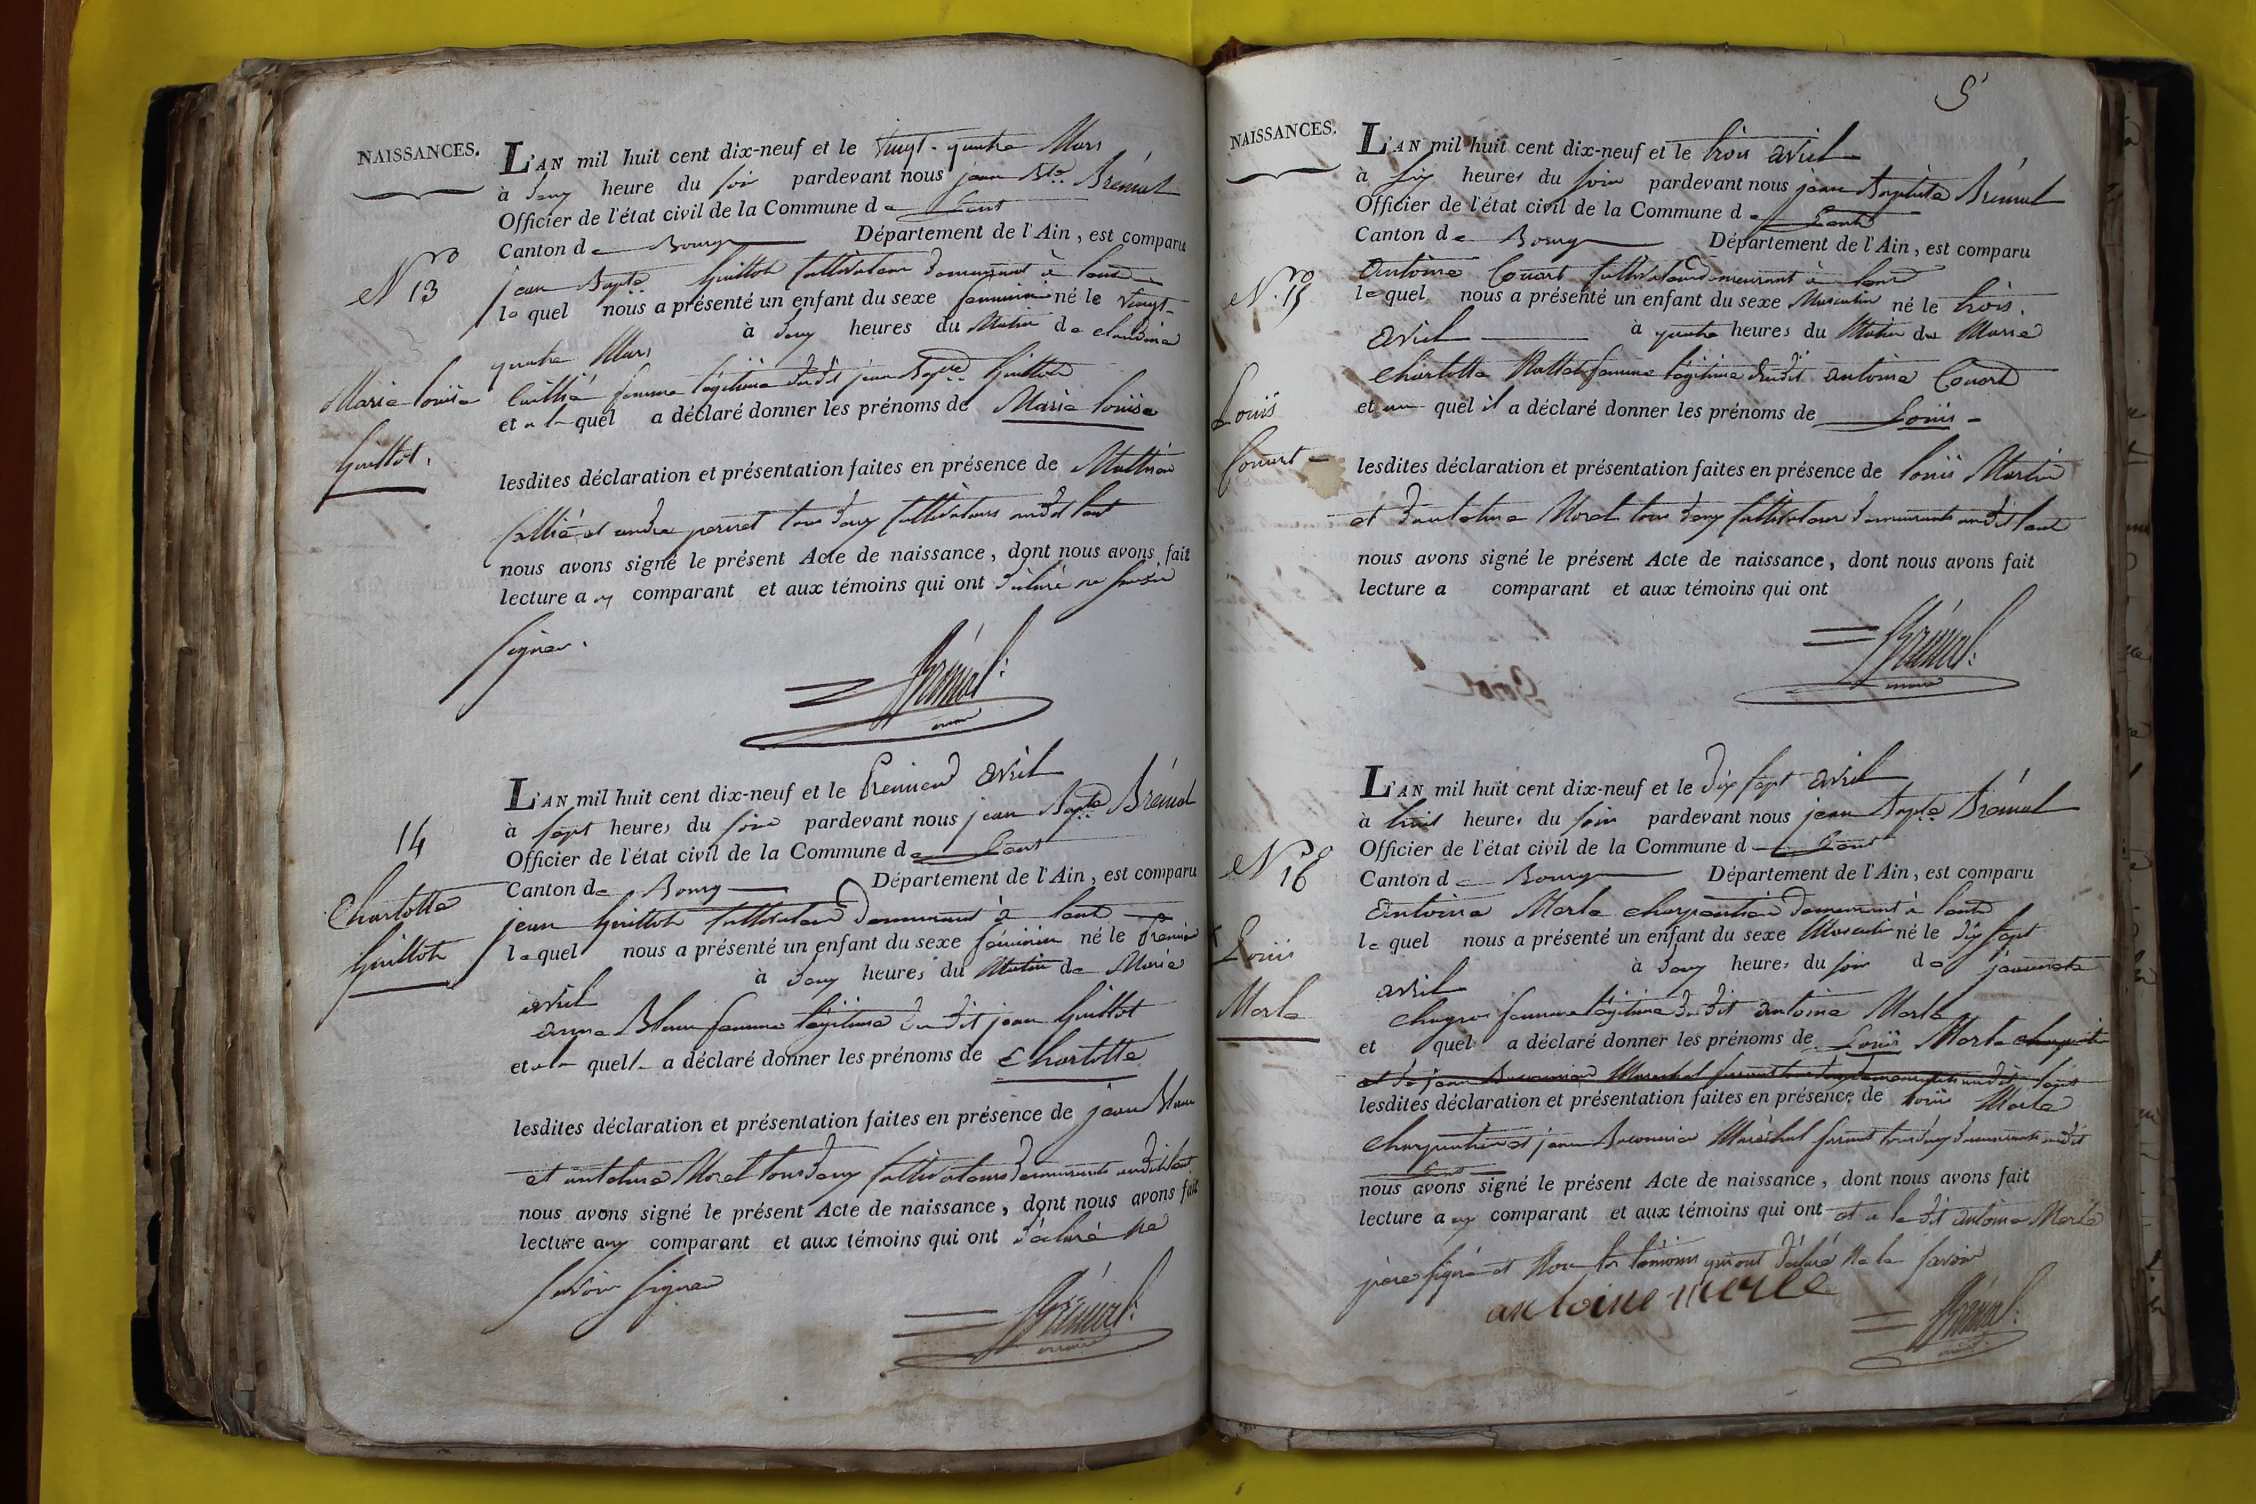 NAISSANCES.
L'AN mil huit cent dix-neuf et le vingt-quatre Mars
à deux heure du soir pardevant nous jean Bte Brémal
Officier de l'état civil de la Commune de Lent
Canton de Bourg Département de l'Ain, est comparu
N° 13
jean Bapte Guillot Cultivateur demeurant à Lent
lequel nous a présenté un enfant du sexe feminin né le vingt-
quatre Mars à deux heures du Matin de claudine
Marie Louise
femme légitime dudit jean Bapte Guillot
et a la quel a déclaré donner les prénoms de Marie Louise
Guillot.
lesdites déclaration et présentation faites en présence de
et andré perret tous deux Cultivateurs audit Lent
nous avons signé le présent Acte de naissance, dont nous avons fait
lecture aux comparant et aux témoins qui ont déclaré ne savoir
signer.
Brémal
L'AN mil huit cent dix-neuf et le Premier avril
à sept heures du soir pardevant nous jean Bapte Brémal
14
Officier de l'état civil de la Commune de Lent
Canton de Bourg Département de l'Ain, est comparu
Charlotte
jean Guillot Cultivateur demeurant à Lent
lequel nous a présenté un enfant du sexe féminin né le Premier
Guillot
avril à deux heures du Matin de Marie
anne Blanc femme légitime du dit jean Guillot
et a la quelle a déclaré donner les prénoms de Charlotte
lesdites déclaration et présentation faites en présence de jean Blanc
et antoine Morel tous deux Cultivateurs demeurants audit Lent
nous avons signé le présent Acte de naissance, dont nous avons fait
lecture aux comparant et aux témoins qui ont déclaré ne
savoir signer
Brémal
5
NAISSANCES.
L'AN mil huit cent dix-neuf et le trois avril
à six heures du soir pardevant nous jean Baptiste Brémal
Officier de l'état civil de la Commune de Lent
Canton de Bourg Département de l'Ain, est comparu
N° 15
antoine Convert Cultivateur demeurant à Lent
lequel nous a présenté un enfant du sexe Masculin né le trois
avril à quatre heures du Matin de Marie
charlotte femme légitime dudit antoine Convert
Louis
et au quel il a déclaré donner les prénoms de Louis
Convert
lesdites déclaration et présentation faites en présence de Louis Martin
et d'antoine Morel tous deux Cultivateurs demeurants audit Lent
nous avons signé le présent Acte de naissance, dont nous avons fait
lecture a comparant et aux témoins qui ont
Brémal
L'AN mil huit cent dix-neuf et le dix sept avril
à huit heures du soir pardevant nous jean Bapte Brémal
Officier de l'état civil de la Commune d Lent
N° 16
Canton de Bourg Département de l'Ain, est comparu
antoine Merle charpentier demeurant à Lent
lequel nous a présenté un enfant du sexe Masculin né le dix sept
Louis
avril à deux heures du soir de
femme légitime du dit antoine Merle
Merle
et quel a déclaré donner les prénoms de Louis Merle charpentier
et de jean Maréchal ferrant tous deux demeurants audit Lent
lesdites déclaration et présentation faites en présence de Louis Merle
charpentier et jean Maréchal ferrant tous deux demeurants audit
Lent
nous avons signé le présent Acte de naissance, dont nous avons fait
lecture aux comparant et aux témoins qui ont et a le dit antoine Merle
père signé et Non les témoins qui ont déclaré ne le savoir
antoine merle
Brémal